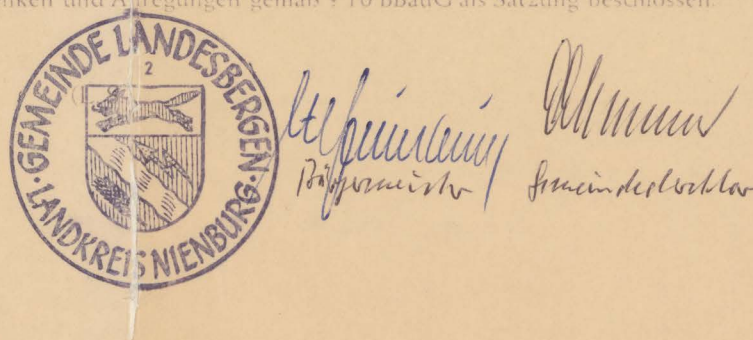 nken und Anregungen gemäß § 10 BBauG als Satzung beschlossen.
GEMEINDE LANDESBERGEN
2
LANDKREIS NIENBURG
Bürgermeister Gemeindedirektor